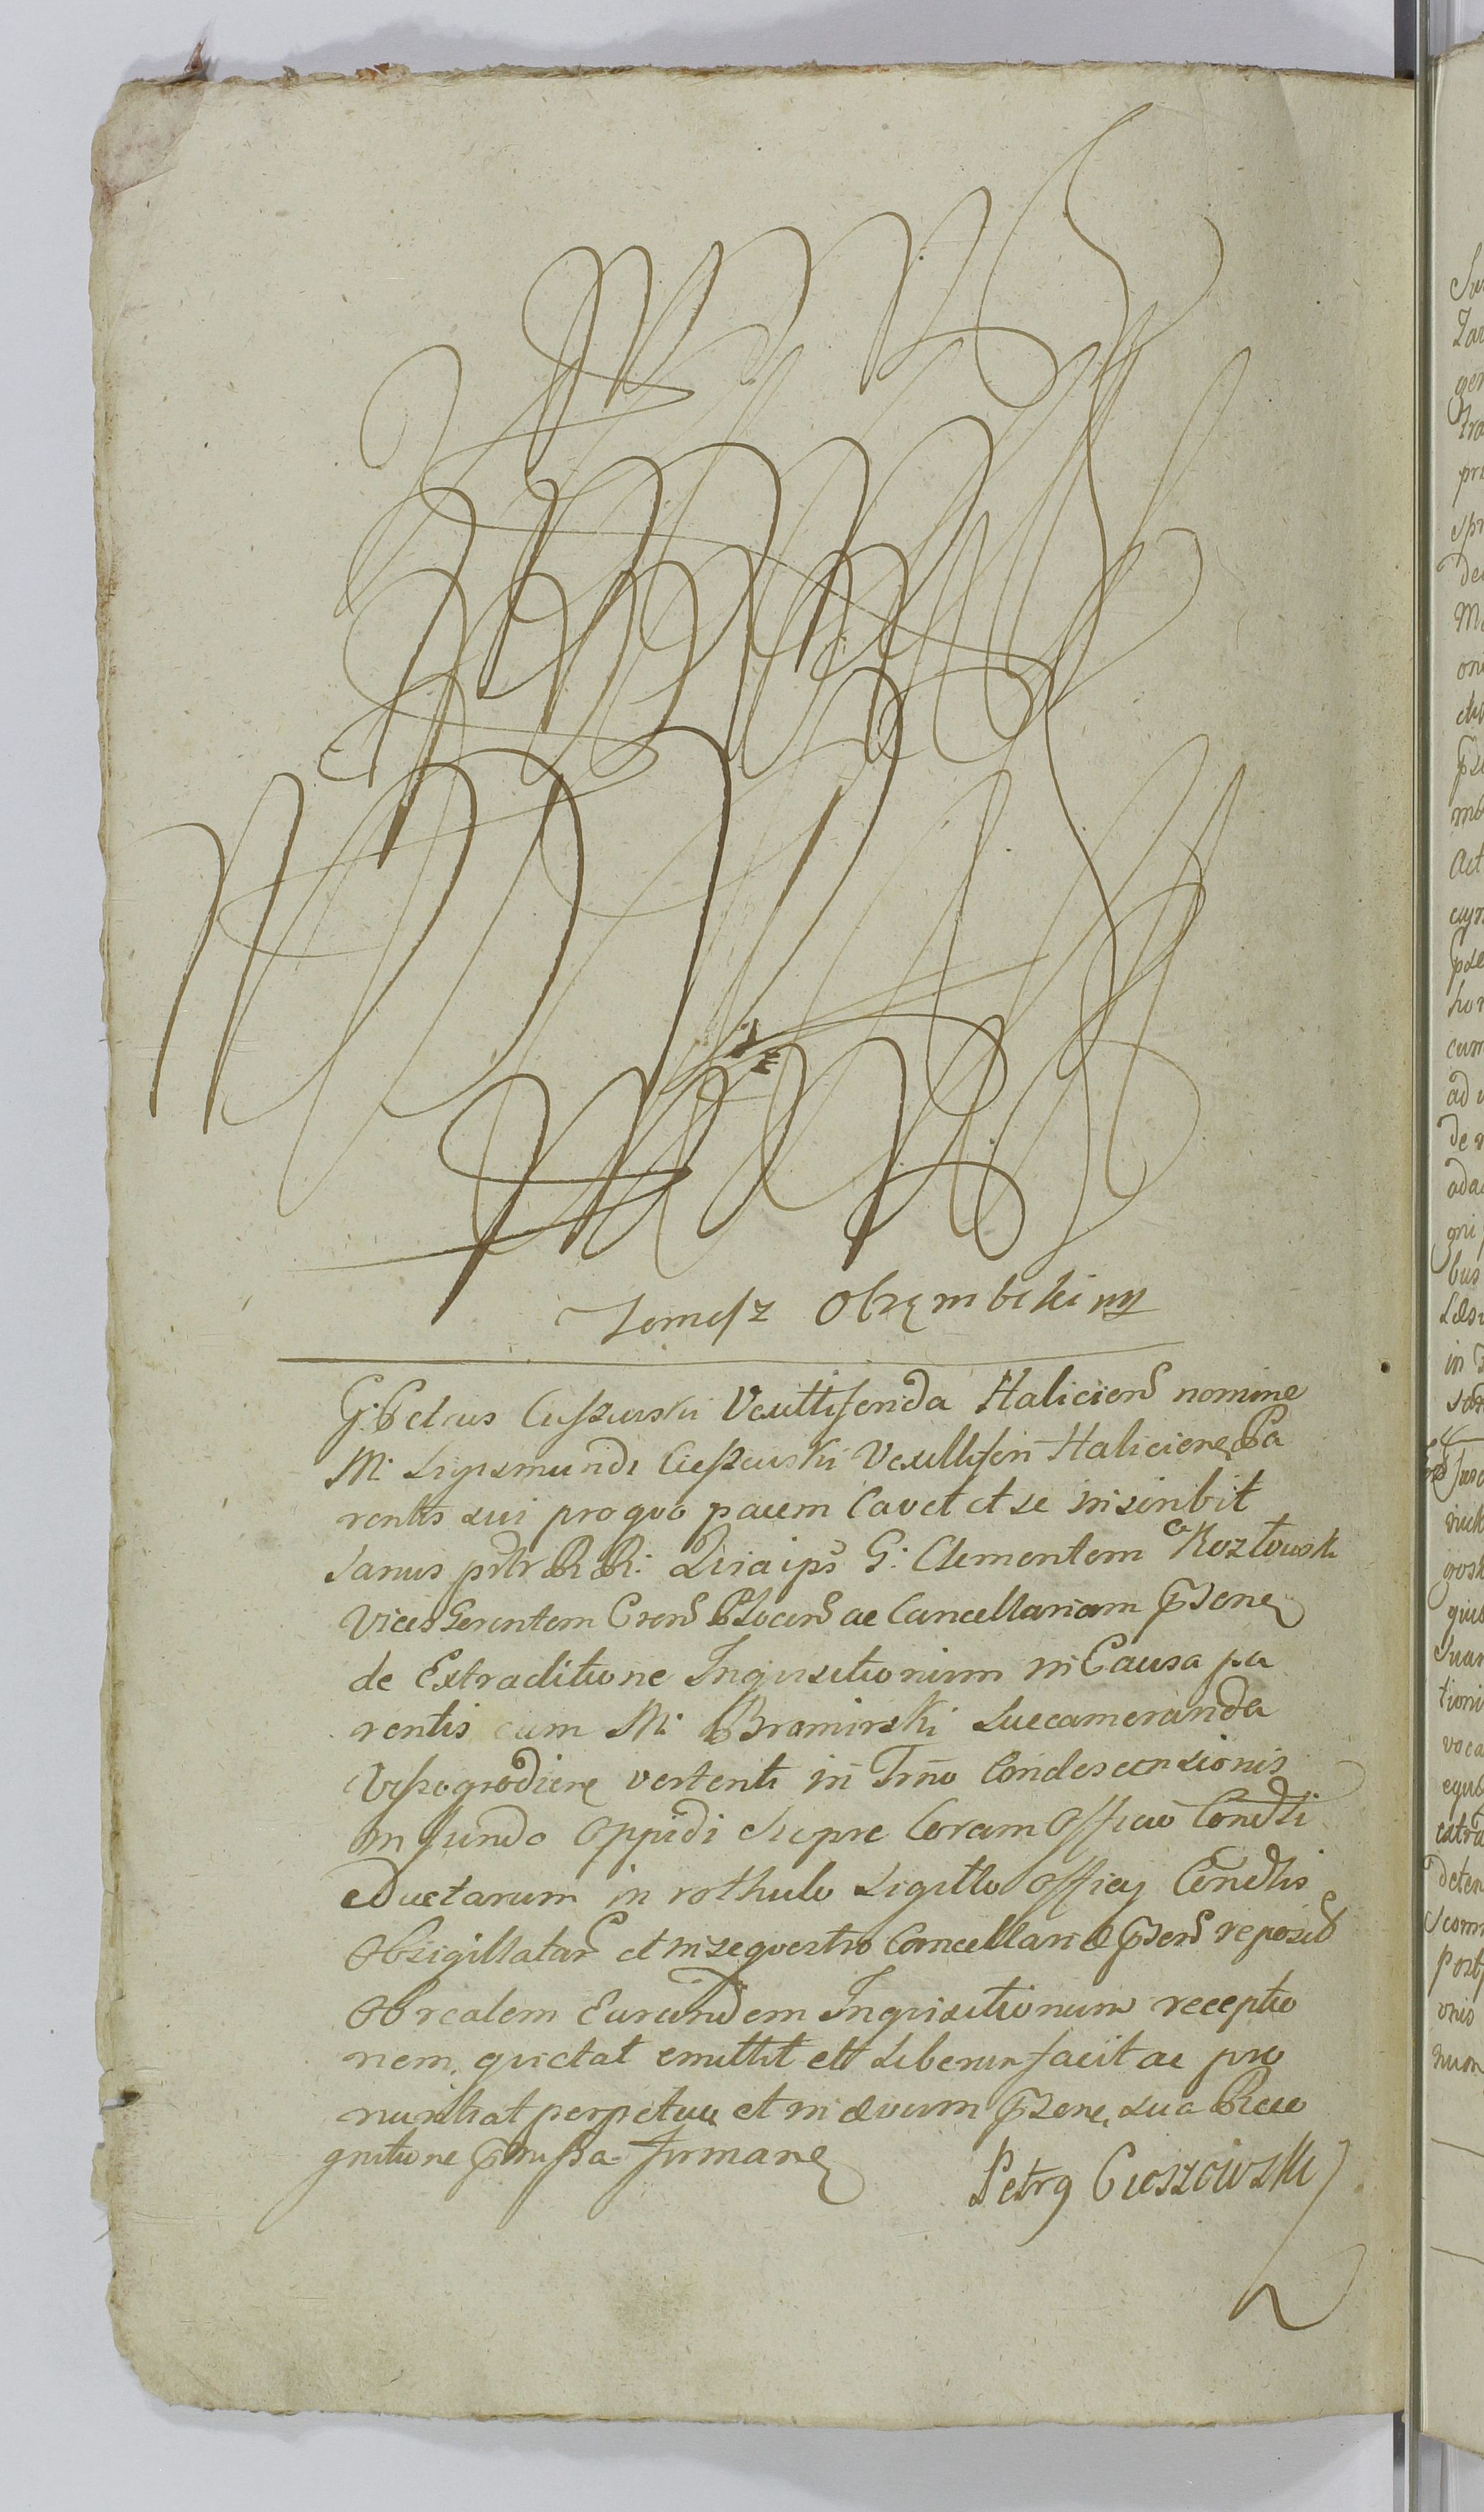 Tomasz Obrębski mp
G: Petrus Cieszewski Vexilliferida Haliciens nomine
M: Sigismundi Cieszewski Vexillifen Haliciene Pa
rentis sui pro quo pacem Cavet et se inscribit
Sanus R R: G: Clementem Kozłowski
Vices Gerentem Crens Plocens ac Cancellariam psene
de Extraditione Inquisitionum in Causa pa
rentis cum M: Bromirski Succameranda
Vyszogrodiene vertenti in Trno Condescensionis
in fundo Oppidi Coram Officio Condli
eductarum in rothulo Sigillo Officij Condlis
Obsigillatar et in sequestro Cancellariæ psens reposit
Ob realem Earundem Inquisitionum receptio
nem, quietat emittit et Liberum facit ac pro
nuntiat perpetuu et in ævum psene, sua Reco
gnitione pmissa Firmane
Petrg Cieszowski